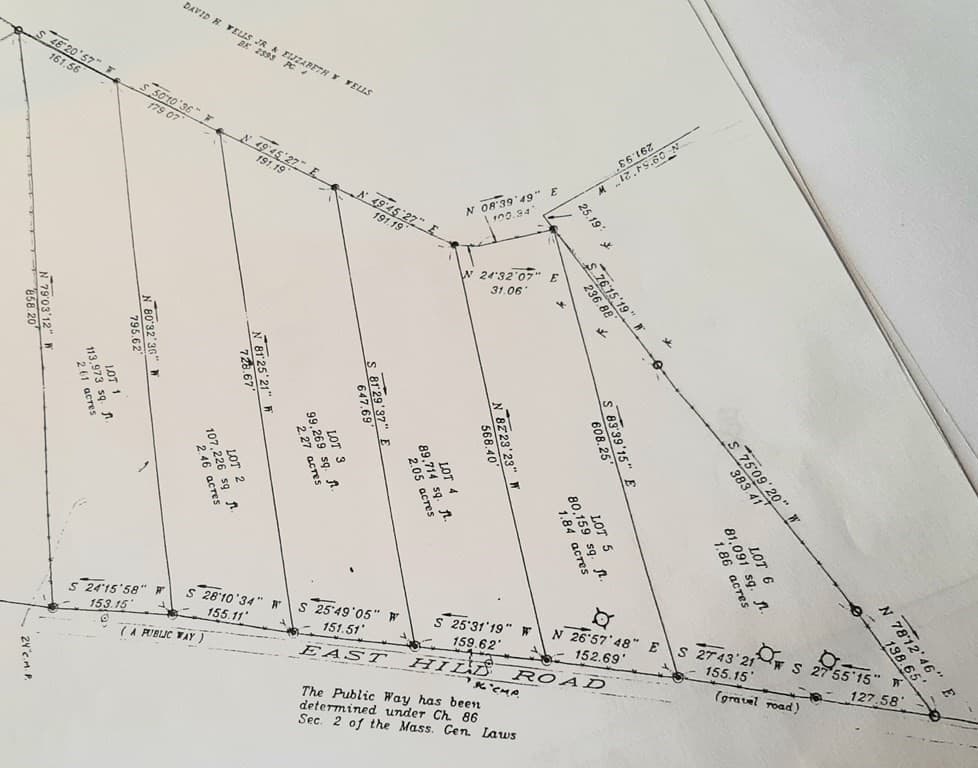 DAVID H. WELLS JR. & ELIZABETH W WELLS
BK 2393 PG 4
S 46°20'57" W
161.56
S 50°10'36" W
179.07'
N 49°45'27" E
191.19'
N 49°45'27" E
191.19'
N 08°39'49" E
100.34'
N 24°32'07" E
31.06'
N 09°54'21" W
291.93'
25.19'
S 76°15'19" W
236.88'
S 75°09'20" W
383.41'
N 78°12'46" E
138.65'
N 79°03'12" W
858.20'
N 80°32'36" W
795.62'
N 81°25'21" W
728.67'
S 81°29'37" E
647.69'
N 82°23'23" W
568.40'
S 83°39'15" E
608.25'
LOT 1
113,973 sq. ft.
2.61 acres
LOT 2
107,226 sq. ft.
2.46 acres
LOT 3
99,269 sq. ft.
2.27 acres
LOT 4
89,714 sq. ft.
2.05 acres
LOT 5
80,159 sq. ft.
1.84 acres
LOT 6
81,091 sq. ft.
1.86 acres
S 24°15'58" W
153.15'
S 28°10'34" W
155.11'
S 25°49'05" W
151.51'
S 25°31'19" W
159.62'
N 26°57'48" E
152.69'
S 27°43'21" W
155.15'
S 27°55'15" W
127.58'
(A PUBLIC WAY)
EAST HILL ROAD
(gravel road)
24"C.M.P.
"C.M.P.
The Public Way has been
determined under Ch. 86
Sec. 2 of the Mass. Gen. Laws